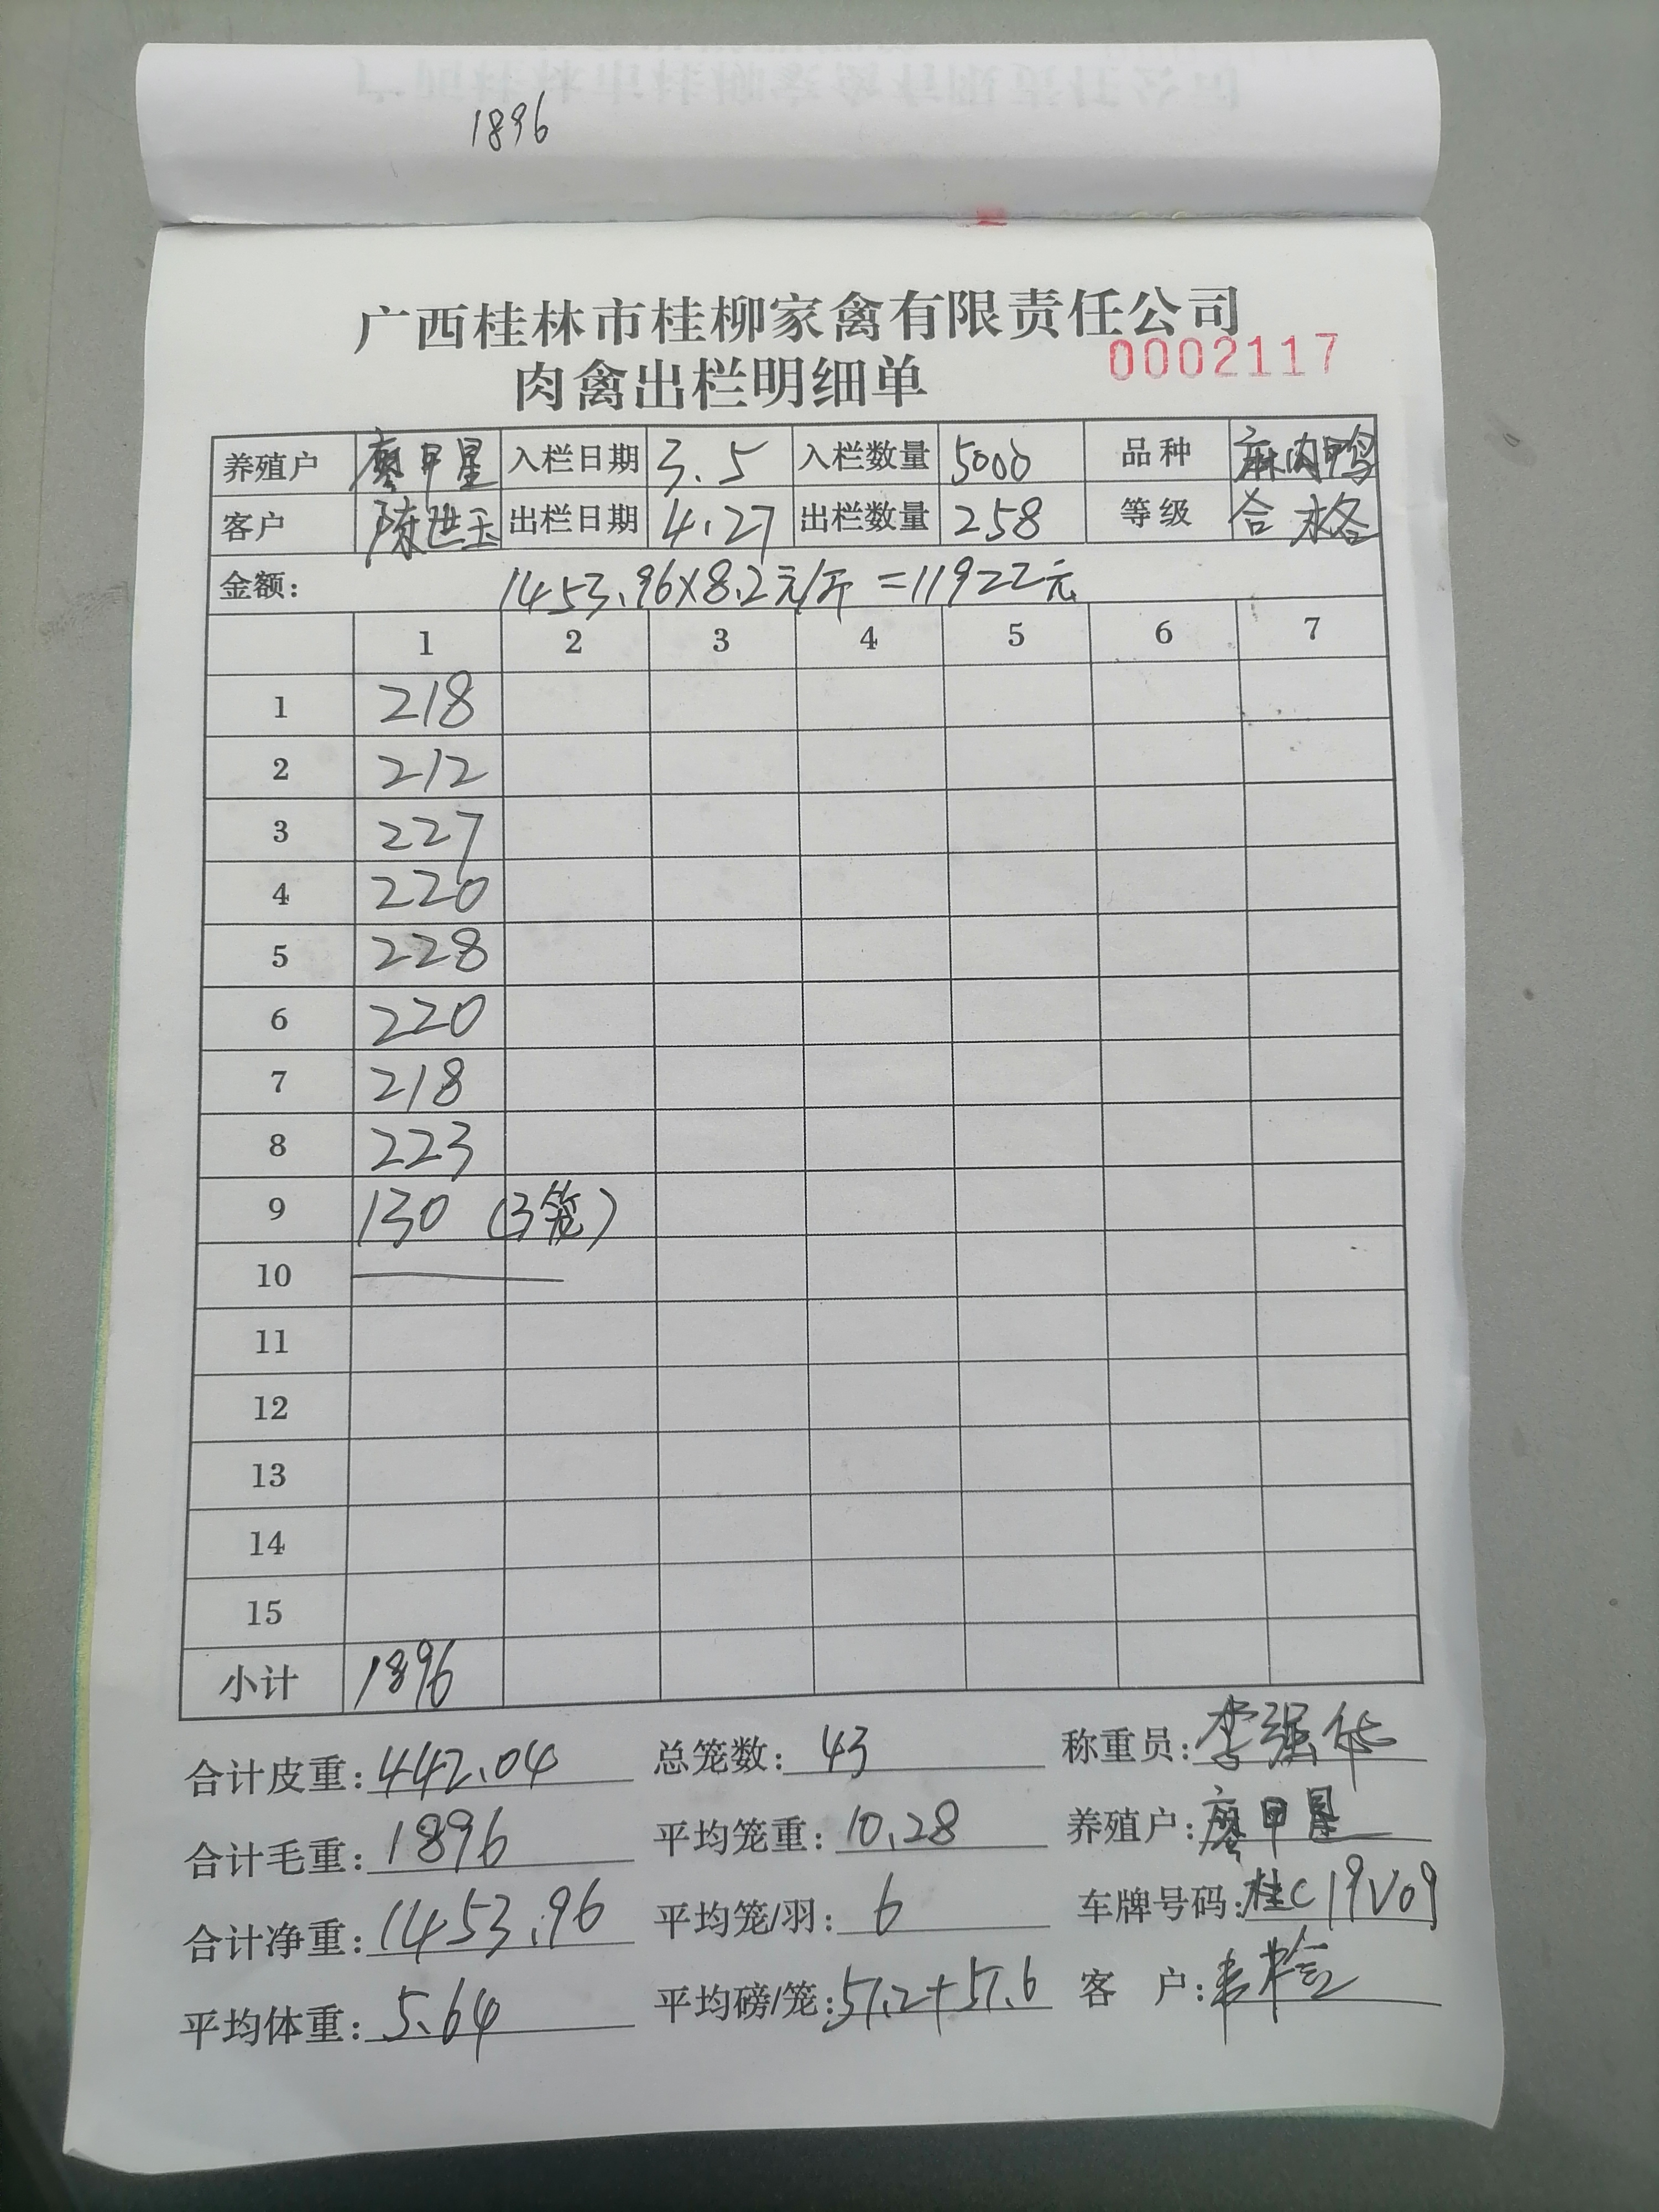 1896
广西桂林市桂柳家禽有限责任公司
肉禽出栏明细单 0002117
养殖户 廖甲星 入栏日期 3.5 入栏数量 5000 品种 麻肉鸭
客户 陈世玉 出栏日期 4.27 出栏数量 258 等级 合格
金额: 1453.96×8.2元/斤=11922元
1 2 3 4 5 6 7
1 218
2 212
3 227
4 220
5 228
6 220
7 218
8 223
9 130 (3笼)
10
11
12
13
14
15
小计 1896
合计皮重: 442.04 总笼数: 43 称重员: 李强华
合计毛重: 1896 平均笼重: 10.28 养殖户: 廖甲星
合计净重: 1453.96 平均笼/羽: 6 车牌号码: 桂C19V09
平均体重: 5.64 平均磅/笼: 51.2+51.6 客户: